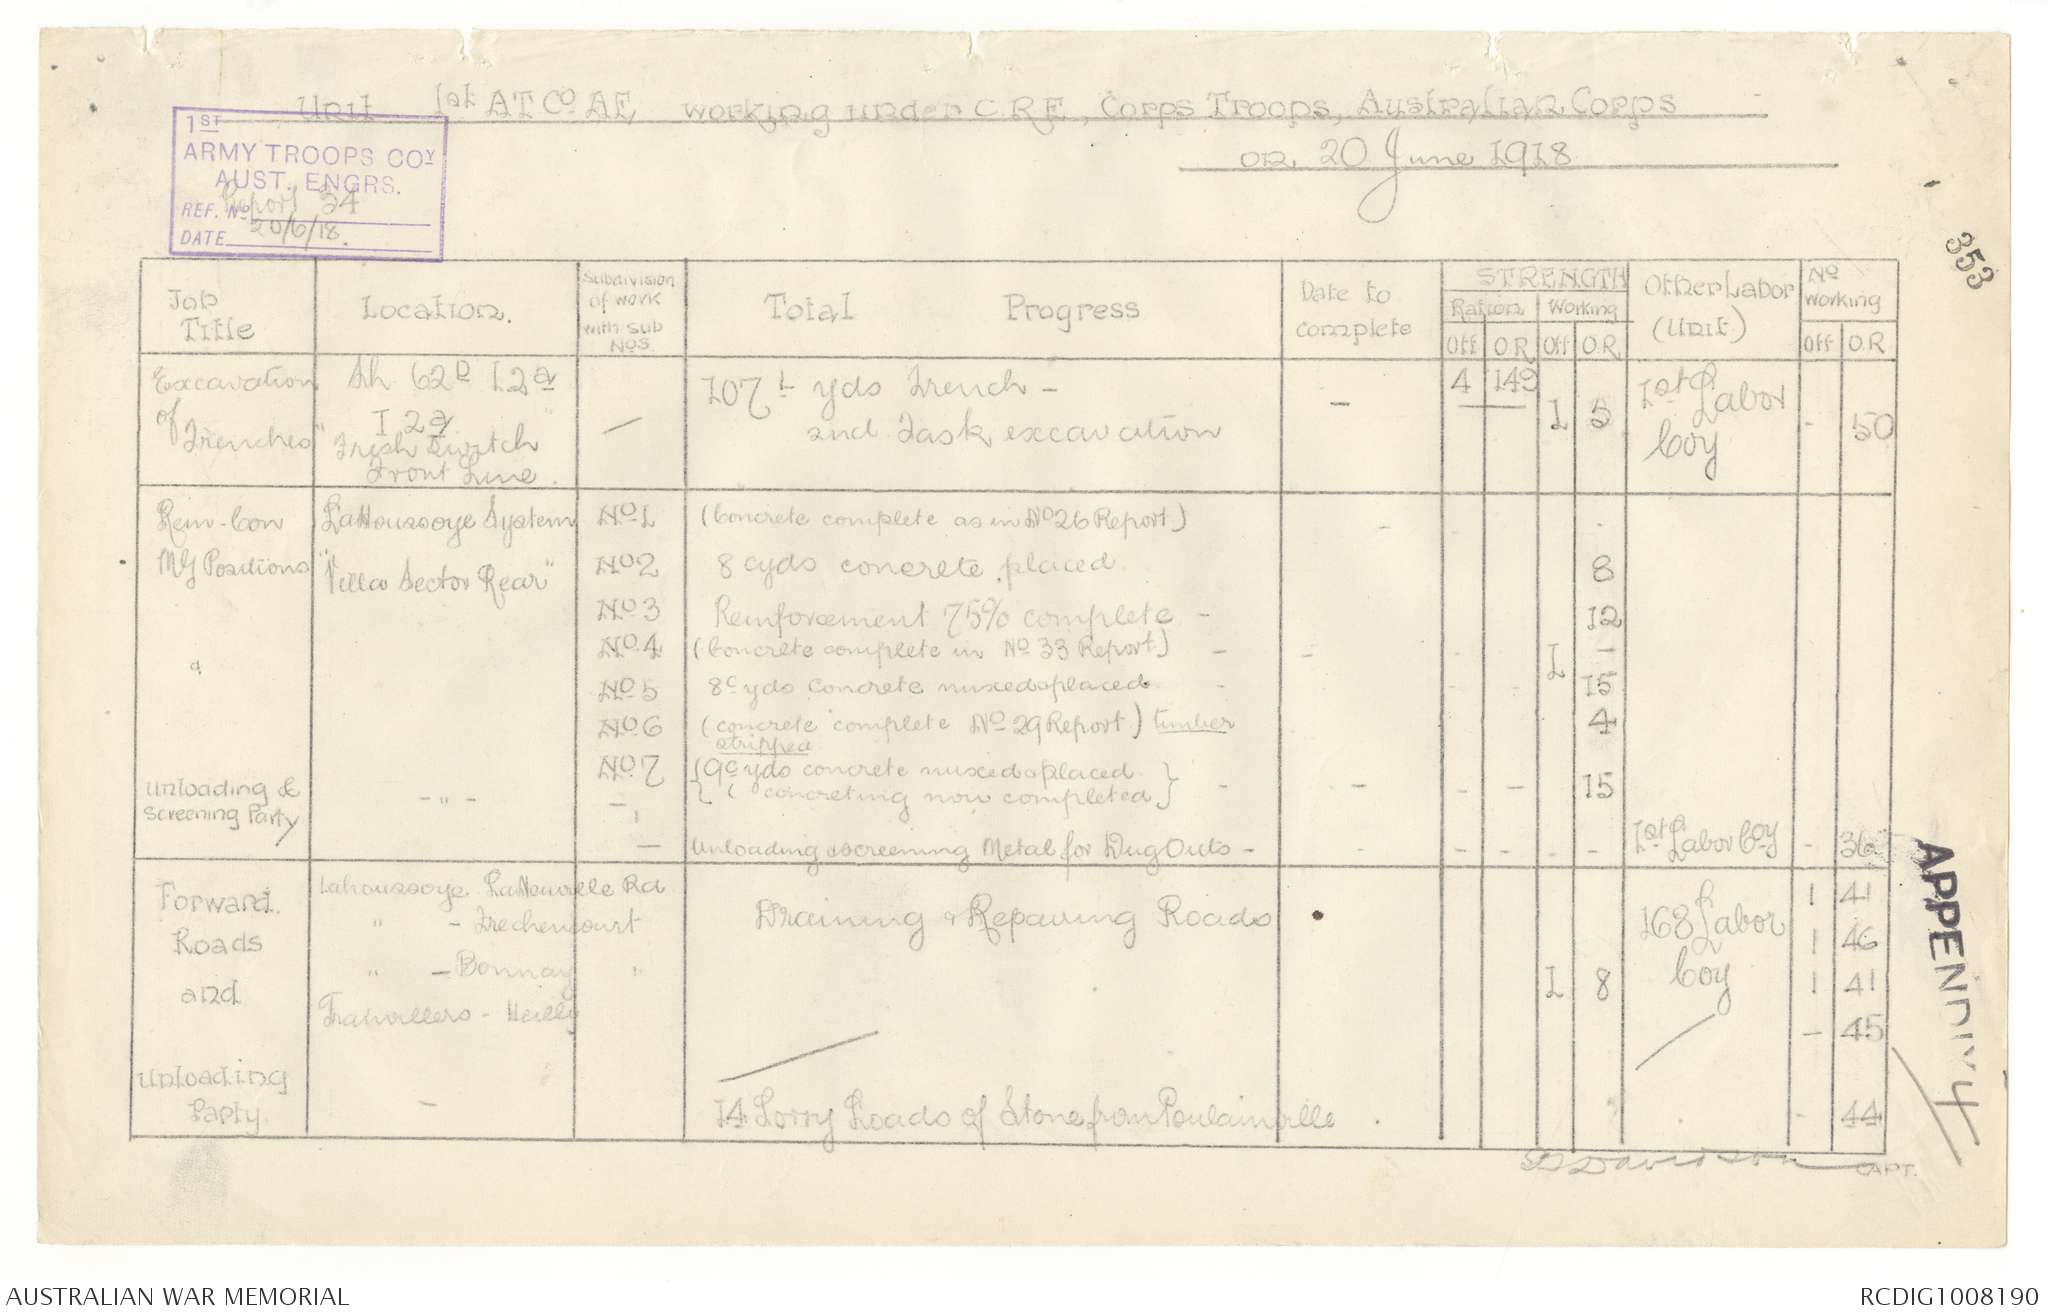 Unit 1st A T Co A E working under C.R.E, Corps Troops, Australian Corps
on 20 June 1918
1ST
ARMY TROOPS COY
AUST. ENGRS.
REF. No Report 34
DATE 20/6/18.
353
Job Title
Location.
Subdivision of work with sub Nos
Total Progress
Date to complete
STRENGTH
Ration Working
Off O.R Off O.R
Other Labor (Unit)
No Working
Off O.R
Excavation Sh 62D I.2a — 107 yds Trench - — 4 149 1 5 1st Labor Coy - 50
of Trenches" I 2a and Task excavation
Irish Switch
Front Line.
Rein-Con LaHoussoye System No 1 (Concrete complete as in No 26 Report) -
MG Positions "Villa Sector Rear" No 2 8 cyds concrete placed. 8
No 3 Reinforcement 75% complete - 12
No 4 (Concrete complete in No 33 Report) - - 1 -
No 5 8 c yds concrete mixed & placed - 15
No 6 (concrete complete No 29 Report) timber 4
stripped
No 7 (9 c yds concrete mixed & placed - - - - 15
( concreting now completed)
Unloading & - " -
Screening Party
— Unloading & screening Metal for Dug Outs - - - - - - 1st Labor Coy - 36
Forward Lahoussoye LaNeuville Rd Draining & Repairing Roads 1 8 168 Labor Coy 1 41
Roads " - Frechencourt 1 46
and " - Bonnay " 1 41
Franvillers - Heilly - 45
Unloading
Party. - 14 Lorry Loads of Stone from Poulainville - 44
Davidson CAPT.
APPENDIX 4
AUSTRALIAN WAR MEMORIAL
RCDIG1008190